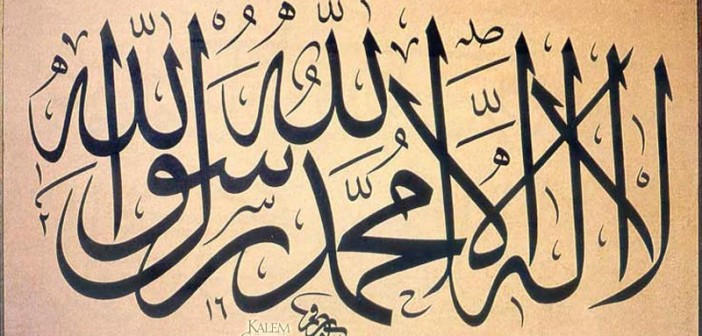 لا اله الا الله محمد رسول الله
KALEM